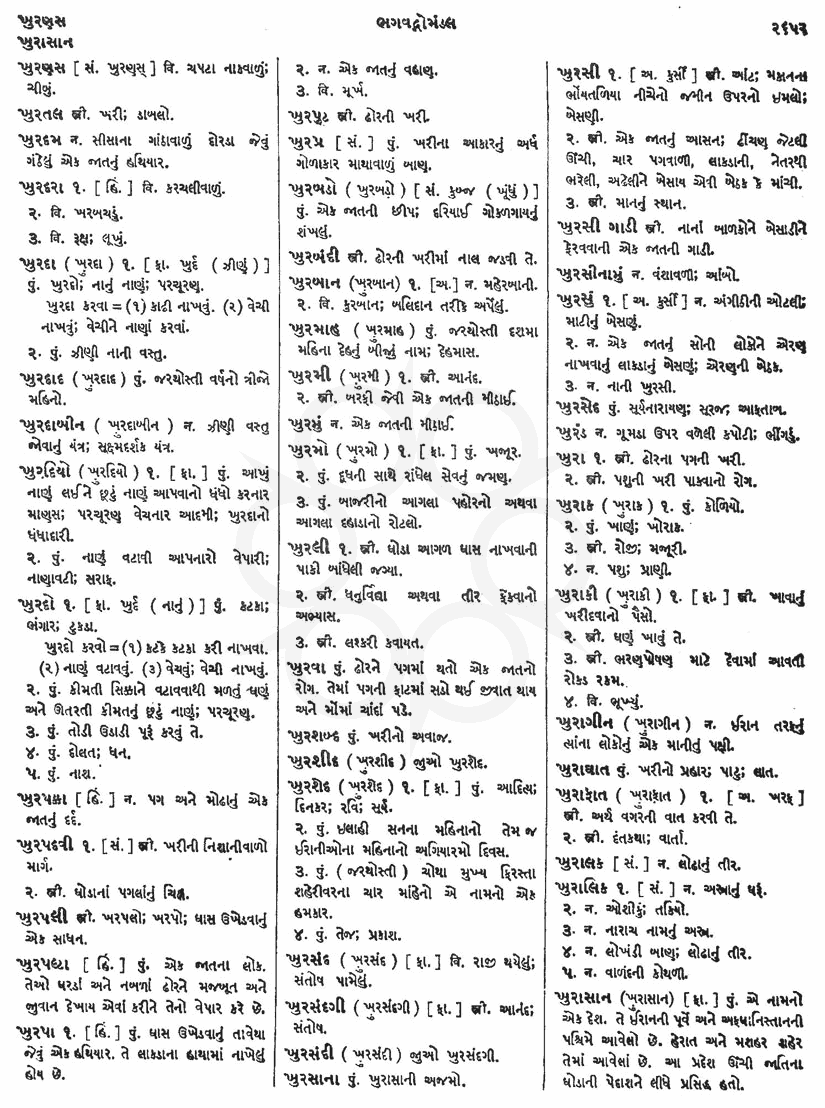 ખુરણસ
ખુરાસાન
ભગવદ્ગોમંડલ
૨૬૫૨
ખુરણસ [ સં. ખુરણસ્ ] વિ. ચપટા નાકવાળું;
ચીબું.
ખુરતલ સ્ત્રી. ખરી; ડાબલો.
ખુરદમ ન. સીસાના ગાંઠાવાળું દોરડા જેવું
ગંઠેલું એક જાતનું હથિયાર.
ખુરદરા ૧. [ હિં. ] વિ. કરચલીવાળું.
૨. વિ. ખરબચડું.
૩. વિ. રૂક્ષ; લૂખું.
ખુરદા ( ખુરદા ) ૧. [ ફા. ખુર્દ ( ઝીણું ) ]
પું. ખુરદો; નાનું નાણું; પરચૂરણ.
ખુરદા કરવા = (૧) કાઢી નાખવું. (૨) વેચી
નાખવું; વેચીને નાણાં કરવાં.
૨. પું. ઝીણી નાની વસ્તુ.
ખુરદાદ ( ખુરદાદ ) પું. જરથોસ્તી વર્ષનો ત્રીજો
મહિનો.
ખુરદાબીન ( ખુરદાબીન ) ન. ઝીણી વસ્તુ
જોવાનું યંત્ર; સૂક્ષ્મદર્શક યંત્ર.
ખુરદિયો ( ખુરદિયો ) ૧. [ ફા. ] પું. આખું
નાણું લઈને છૂટું નાણું આપવાનો ધંધો કરનાર
માણસ; પરચૂરણ વેચનાર આદમી; ખુરદાનો
ધંધાદારી.
૨. પું. નાણું વટાવી આપનારો વેપારી;
નાણાવટી; સરાફ.
ખુરદો ૧. [ ફા. ખુર્દ ( નાનું ) ] પું. કટકા;
ભંગાર; ટુકડા.
ખુરદો કરવો = (૧) કટકે કટકા કરી નાખવા.
(૨) નાણું વટાવવું. (૩) વેચવું; વેચી નાખવું.
૨. પું. કીમતી સિક્કાને વટાવવાથી મળતું ઘણું
અને ઊતરતી કીમતનું છૂટું નાણું; પરચૂરણ.
૩. પું. તોડી ઉડાડી પૂરૂં કરવું તે.
૪. પું. દોલત; ધન.
૫. પું. નાશ.
ખુરપકા [ હિં. ] ન. પગ અને મોઢાનું એક
જાતનું દર્દ.
ખુરપદવી ૧. [ સં. ] સ્ત્રી. ખરીની નિશાનીવાળો
માર્ગ.
૨. સ્ત્રી. ઘોડાનાં પગલાંનું ચિહ્ન.
ખુરપલી સ્ત્રી. ખરપલો; ખરપો; ઘાસ ઉખેડવાનું
એક સાધન.
ખુરપલ્ટા [ હિં. ] પું. એક જાતના લોક.
તેઓ ઘરડાં અને નબળાં ઢોરને મજબૂત અને
જુવાન દેખાય એવાં કરીને તેનો વેપાર કરે છે.
ખુરપા ૧. [ હિં. ] પું. ઘાસ ઉખેડવાનું તાવેથા
જેવું એક હથિયાર. તે લાકડાના હાથામાં નાખેલું
હોય છે.
૨. ન. એક જાતનું વહાણ.
૩. વિ. મૂર્ખ.
ખુરપુટ સ્ત્રી. ઢોરની ખરી.
ખુરપ્ર [ સં. ] પું. ખરીના આકારનું અર્ધ
ગોળાકાર માથાવાળું બાણ.
ખુરબડો ( ખુરબડો ) [ સં. કુબ્જ ( ખૂંધું ) ]
પું. એક જાતની છીપ; દરિયાઈ ગોકળગાયનું
શંખલું.
ખુરબંદી સ્ત્રી. ઢોરની ખરીમાં નાલ જડવી તે.
ખુરબાન ( ખુરબાન ) ૧. [અ.] ન. મહેરબાની.
૨. વિ. કુરબાન; બલિદાન તરીકે અર્પેલું.
ખુરમાહ ( ખુરમાહ ) પું. જરથોસ્તી દશમા
મહિના દેહનું બીજું નામ; દેહમાસ.
ખુરમી ( ખુરમી ) ૧. સ્ત્રી. આનંદ.
૨. સ્ત્રી. બરફી જેવી એક જાતની મીઠાઈ.
ખુરમું ન. એક જાતની મીઠાઈ.
ખુરમો ( ખુરમો ) ૧. [ ફા. ] પું. ખજૂર.
૨. પું. દૂધની સાથે રાંધેલ સેવનું જમણ.
૩. પું. બાજરીનો આગલા પહોરનો અથવા
આગલા દહાડાનો રોટલો.
ખુરલી ૧. સ્ત્રી. ઘોડા આગળ ઘાસ નાખવાની
પાકી બાંધેલી જગ્યા.
૨. સ્ત્રી. ધનુર્વિદ્યા અથવા તીર ફેંકવાનો
અભ્યાસ.
૩. સ્ત્રી. લશ્કરી કવાયત.
ખુરવા પું. ઢોરને પગમાં થતો એક જાતનો
રોગ. તેમાં પગની ફાટમાં સડો થઈ જીવાત થાય
અને મોંમાં ચાંદાં પડે.
ખુરશબ્દ પું. ખરીનો અવાજ.
ખુરશીદ ( ખુરશીદ ) જુઓ ખુરશેદ.
ખુરશેદ ( ખુરશેદ ) ૧. [ ફા. ] પું. આદિત્ય;
દિનકર; રવિ; સૂર્ય.
૨. પું. ઇલાહી સનના મહિનાનો તેમ જ
ઈરાનીઓના મહિનાનો અગિયારમો દિવસ.
૩. પું. ( જરથોસ્તી ) ચોથા મુખ્ય ફિરસ્તા
શહેરીવરના ચાર માંહેનો એ નામનો એક
હમકાર.
૪. પું. તેજ; પ્રકાશ.
ખુરસંદ ( ખુરસંદ ) [ ફા. ] વિ. રાજી થયેલું;
સંતોષ પામેલું.
ખુરસંદગી ( ખુરસંદગી ) [ ફા. ] સ્ત્રી. આનંદ;
સંતોષ.
ખુરસંદી ( ખુરસંદી ) જુઓ ખુરસંદગી.
ખુરસાના પું. ખુરાસાની અજમો.
ખુરસી ૧. [ અ. કુર્સી ] સ્ત્રી. ઓંટ; મકાનના
ભોંયતળિયા નીચેનો જમીન ઉપરનો ઇમલો;
બેસણી.
૨. સ્ત્રી. એક જાતનું આસન; ઢીંચણ જેટલી
ઊંચી, ચાર પગવાળી, લાકડાની, નેતરથી
ભરેલી, અઢેલીને બેસાય એવી બેઠક કે માંચી.
૩. સ્ત્રી. માનનું સ્થાન.
ખુરસી ગાડી સ્ત્રી. નાનાં બાળકોને બેસાડીને
ફેરવવાની એક જાતની ગાડી.
ખુરસીનામું ન. વંશાવળી; આંબો.
ખુરસું ૧. [ અ. કુર્સી ] ન. અંગીઠીની ઓટલી;
માટીનું બેસણું.
૨. ન. એક જાતનું સોની લોકોને એરણ
નાખવાનું લાકડાનું બેસણું; એરણની બેઠક.
૩. ન. નાની ખુરસી.
ખુરસેદ પું. સૂર્યનારાયણ; સૂરજ; આફતાબ.
ખુરંડ ન. ગૂમડા ઉપર વળેલી કપોટી; ભીંગડું.
ખુરા ૧. સ્ત્રી. ઢોરના પગની ખરી.
૨. સ્ત્રી. પશુની ખરી પાકવાનો રોગ.
ખુરાક ( ખુરાક ) ૧. પું. કોળિયો.
૨. પું. ખાણું; ખોરાક.
૩. સ્ત્રી. રોજી; મજૂરી.
૪. ન. પશુ; પ્રાણી.
ખુરાકી ( ખુરાકી ) ૧. [ ફા. ] સ્ત્રી. ખાવાનું
ખરીદવાનો પૈસો.
૨. સ્ત્રી. ઘણું ખાવું તે.
૩. સ્ત્રી. ભરણપોષણ માટે દેવામાં આવતી
રોકડ રકમ.
૪. વિ. ભૂખ્યું.
ખુરાગીન ( ખુરાગીન ) ન. ઈરાન તરફનું
ત્યાંના લોકોનું એક માનીતું પક્ષી.
ખુરાઘાત પું. ખરીનો પ્રહાર; પાટુ; લાત.
ખુરાફાત ( ખુરાફાત ) ૧. [ અ. ખરફ ]
સ્ત્રી. અર્થ વગરની વાત કરવી તે.
૨. સ્ત્રી. દંતકથા; વાર્તા.
ખુરાલક [ સં. ] ન. લોઢાનું તીર.
ખુરાલિક ૧. [ સં. ] ન. અસ્ત્રાનું ઘરૂં.
૨. ન. ઓશીકું; તકિયો.
૩. ન. નારાચ નામનું અસ્ત્ર.
૪. ન. લોખંડી બાણ; લોઢાનું તીર.
૫. ન. વાળંદની કોથળી.
ખુરાસાન (ખુરાસાન) [ ફા. ] પું. એ નામનો
એક દેશ. તે ઈરાનની પૂર્વે અને અફઘાનિસ્તાનની
પશ્ચિમે આવેલો છે. હેરાત અને મશહર શહેર
તેમાં આવેલાં છે. આ પ્રદેશ ઊંચી જાતિના
ઘોડાની પેદાશને લીધે પ્રસિદ્ધ હતો.